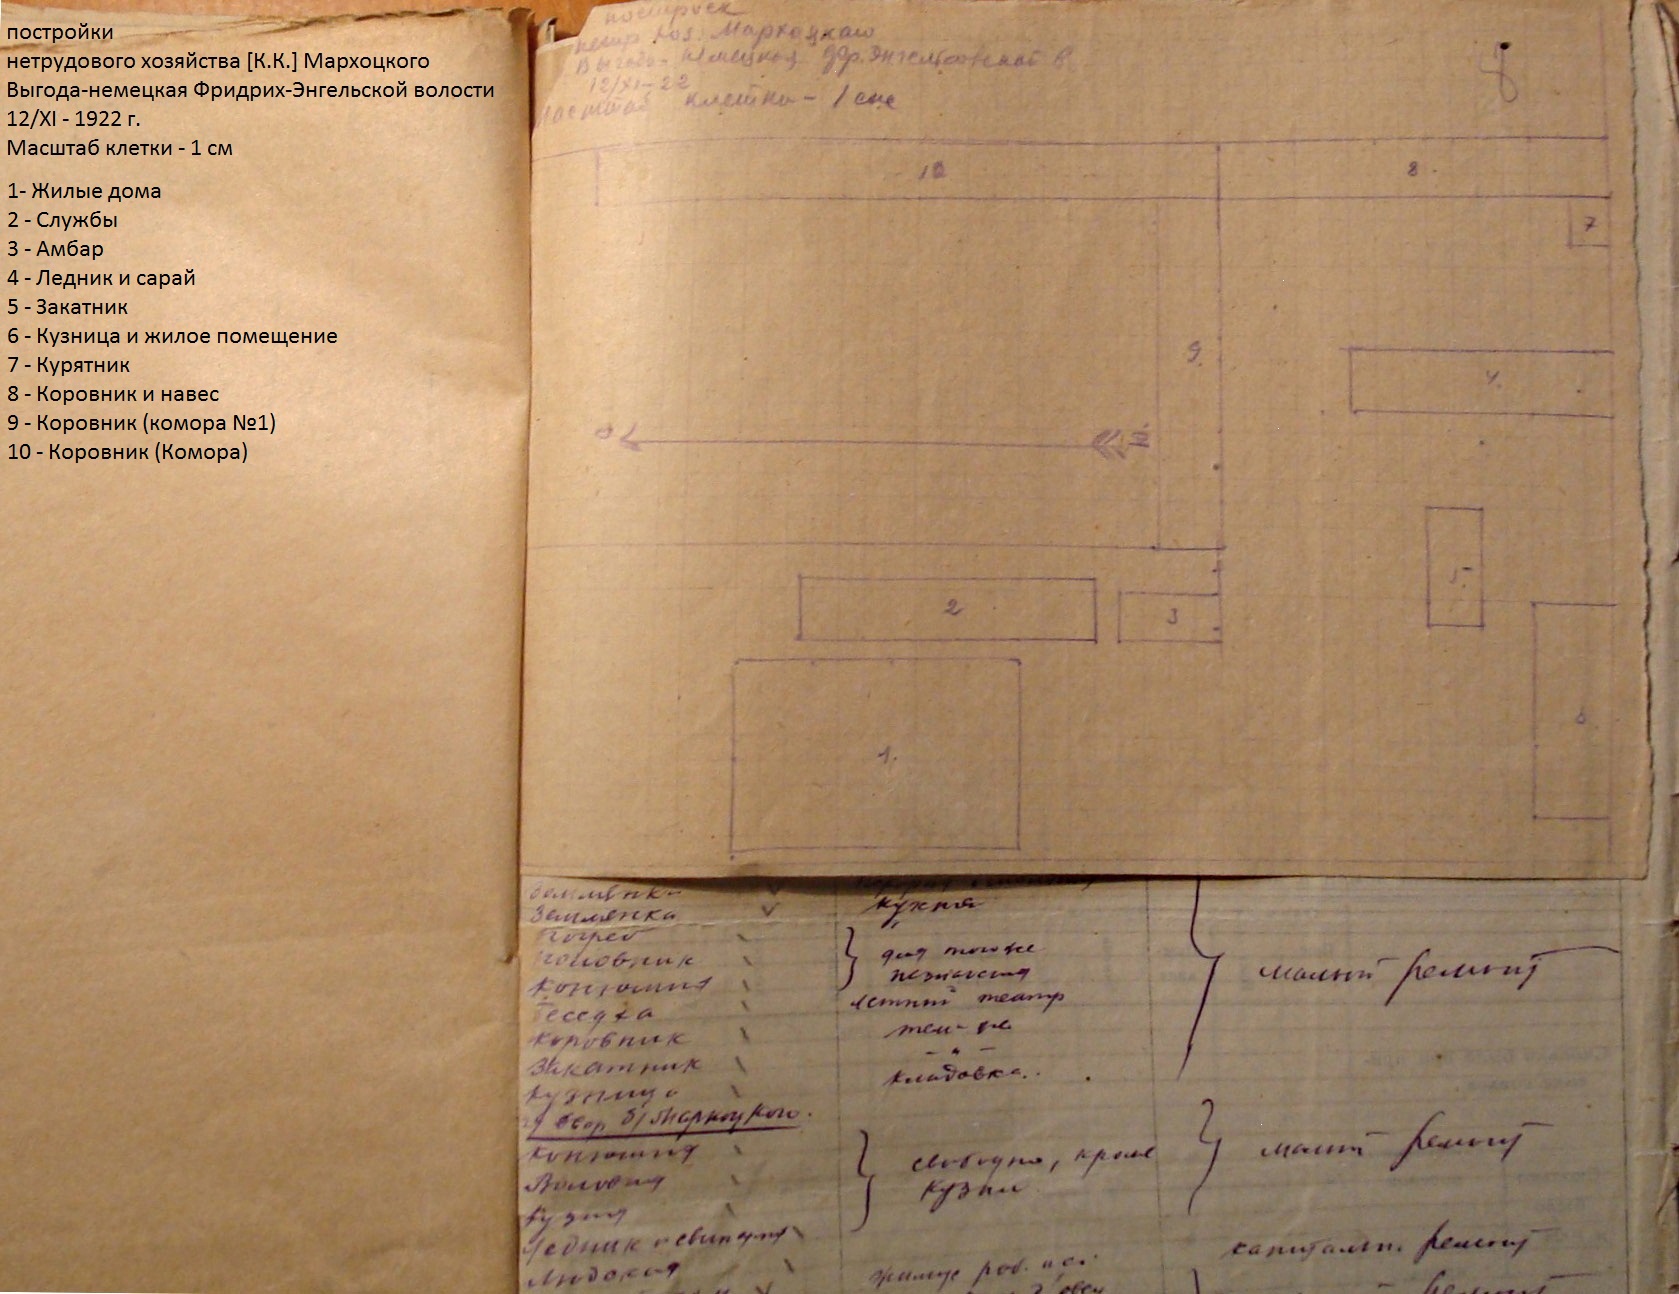 постройки
нетрудового хозяйства [К.К.] Мархоцкого
Выгода-немецкая Фридрих-Энгельской волости
12/XI - 1922 г.
Масштаб клетки - 1 см
1- Жилые дома
2 - Службы
3 - Амбар
4 - Ледник и сарай
5 - Закатник
6 - Кузница и жилое помещение
7 - Курятник
8 - Коровник и навес
9 - Коровник (комора №1)
10 - Коровник (Комора)
построек
Мархоцкаго
12/XI-22
Масштаб клетки - 1 см
8
10
8.
7
9.
4.
2
3
5.
1.
6
Землянка
Землянка кухня
Погреб
Половник для тоже
Конюшня
Беседка летний театр
Коровник
Закатник
Кузница кладовка.
малый ремонт
Мархоцкого.
Конюшня свободно, кроме
Воловня кузни
Кузня
малый ремонт
Ледник и свинарня
капитальн. ремонт
Людская
ремонт